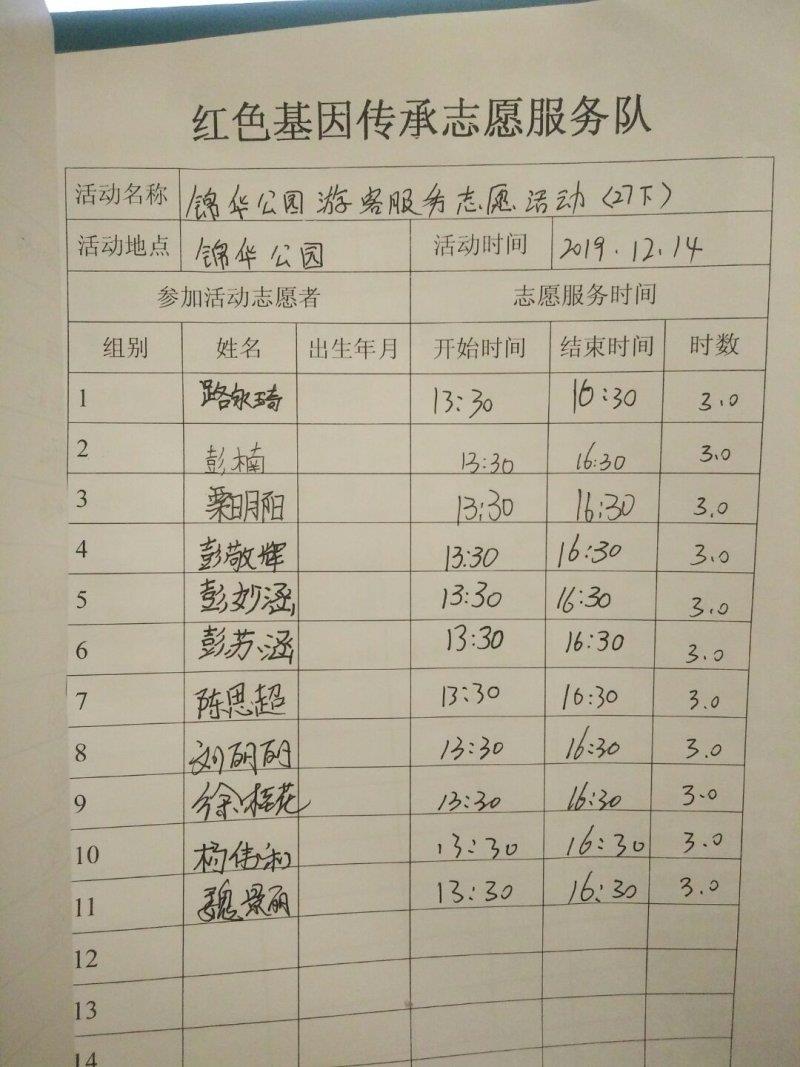 红色基因传承志愿服务队
活动名称 锦华公园游客服务志愿活动（27下）
活动地点 锦华公园 活动时间 2019.12.14
参加活动志愿者 志愿服务时间
组别 姓名 出生年月 开始时间 结束时间 时数
1 路泉琦 13:30 16:30 3.0
2 彭楠 13:30 16:30 3.0
3 栗明阳 13:30 16:30 3.0
4 彭敬辉 13:30 16:30 3.0
5 彭妙涵 13:30 16:30 3.0
6 彭苏涵 13:30 16:30 3.0
7 陈思超 13:30 16:30 3.0
8 刘丽丽 13:30 16:30 3.0
9 徐桂花 13:30 16:30 3.0
10 杨伟利 13:30 16:30 3.0
11 魏景丽 13:30 16:30 3.0
12
13
14